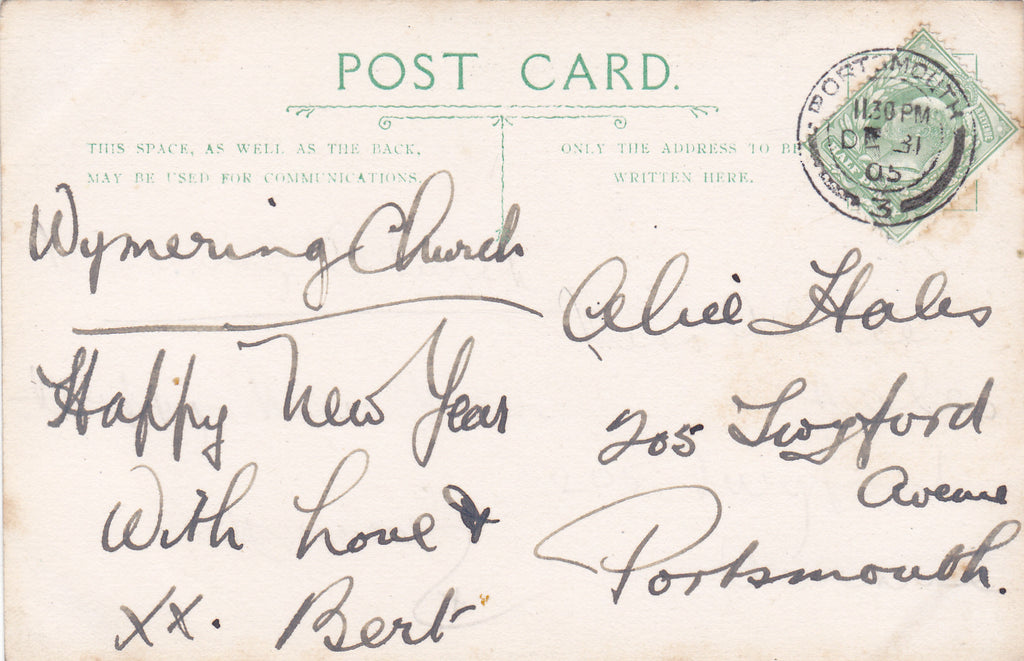 POST CARD.
THIS SPACE, AS WELL AS THE BACK,
MAY BE USED FOR COMMUNICATIONS.
ONLY THE ADDRESS TO BE
WRITTEN HERE.
PORTSMOUTH
11.30 PM
DE 31
05
3
Wymering Church
Happy New Year
With love &
xx. Bert
Alice Hales
205 Twyford
Avenue
Portsmouth.